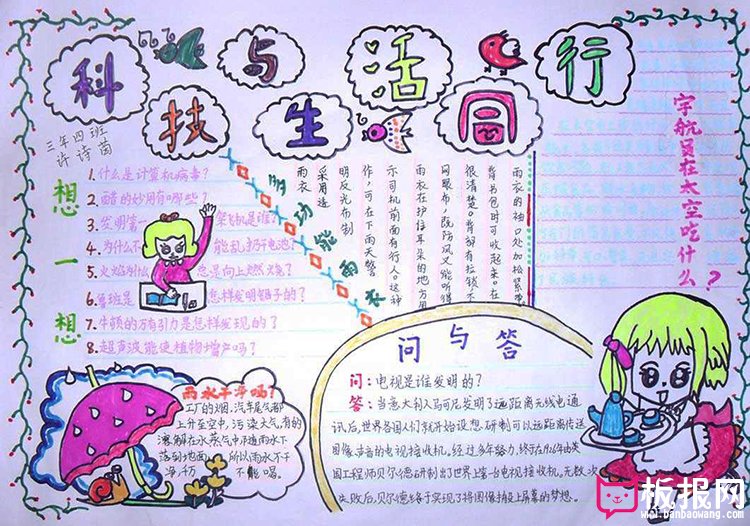 科技与生活同行
三年四班
许诗茵
想一想
1.什么是计算机病毒?
2.醋的妙用有哪些?
3.发明第一架飞机是谁?
4.为什么不能乱扔干电池?
5.火焰为什么总是向上燃烧?
6.鲁班是怎样发明锯子的?
7.牛顿的万有引力是怎样发现的?
8.超声波能使植物增产吗?
多功能雨衣
雨衣的袖口处加松紧带
背书包时可收起来。在
很清楚。背部有拉链不
网眼布,既防风又能听得
雨衣在护住耳朵的地方用
示司机前面有行人。这种
作,可在下雨天警
明反光布制
采用透
雨衣
宇航员在太空吃什么?
雨水干净吗?
工厂的烟,汽车尾气都
上升至空中,污染大气,有的
溶解在水蒸气中不随雨水下
落到地面,所以雨水不干
净,千万不能喝。
问与答
问:电视是谁发明的?
答:当意大利人马可尼发明了远距离无线电通
讯后,世界各国人们就开始设想研制可以远距离传送
图像、声音的电视接收机,经过多年努力,终于在1924年由英
国工程师贝尔德研制出了世界上第一台电视接收机,无数次
失败后,贝尔德终于实现了将图像搬上屏幕的梦想。
板报网
www.banbaowang.com